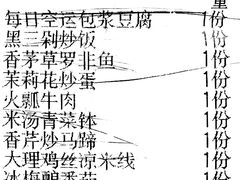 量
每日空运包浆豆腐 1份
黑三剁炒饭 1份
香茅草罗非鱼 1份
茉莉花炒蛋 1份
火瓢牛肉 1份
米汤青菜钵 1份
香芹炒马蹄 1份
大理鸡丝凉米线 1份
冰梅酿番茄 1份